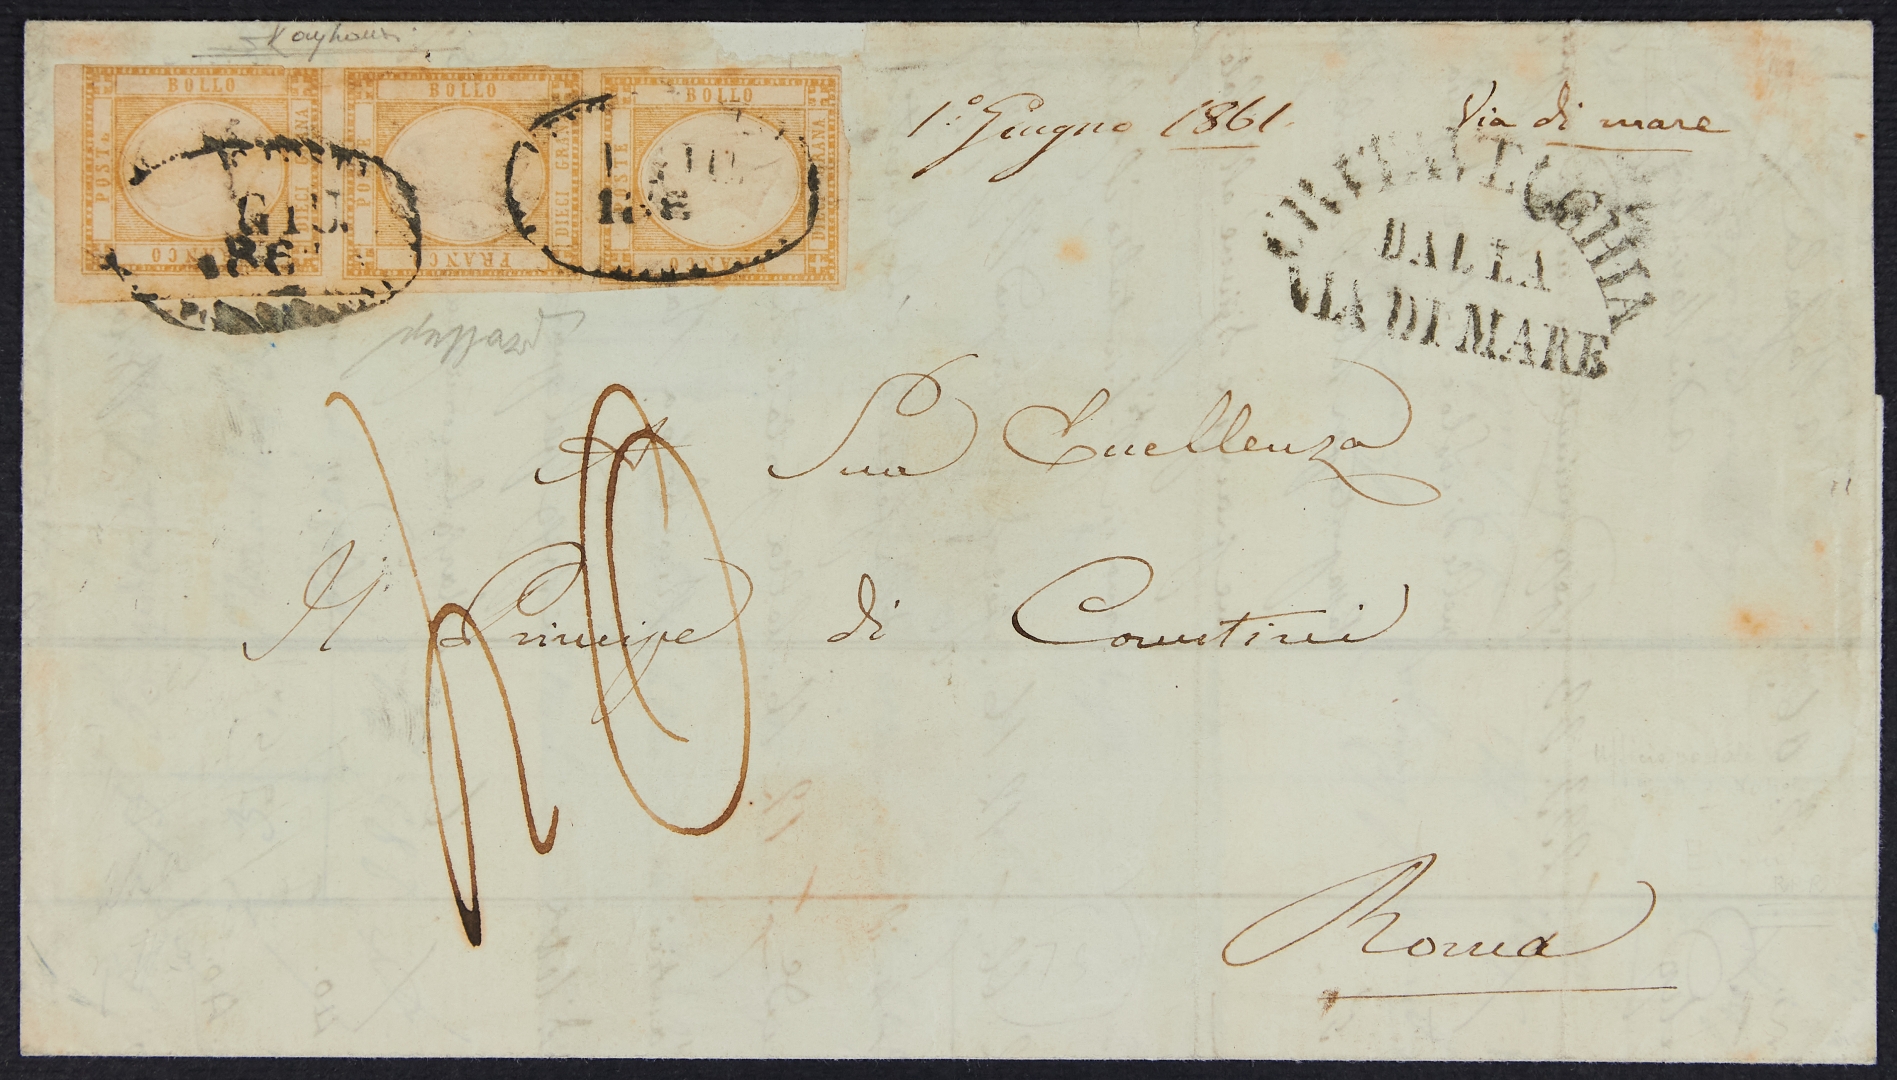 BOLLO BOLLO BOLLO
POSTE DIECI GRANA POSTE DIECI GRANA POSTE DIECI GRANA
FRANCO FRANCO FRANCO
GIU.
186
GIU
186
1º Giugno 1861.
Via di mare
CIVITAVECCHIA
DALLA
VIA DI MARE
A Sua Eccellenza
Il Principe di
Roma